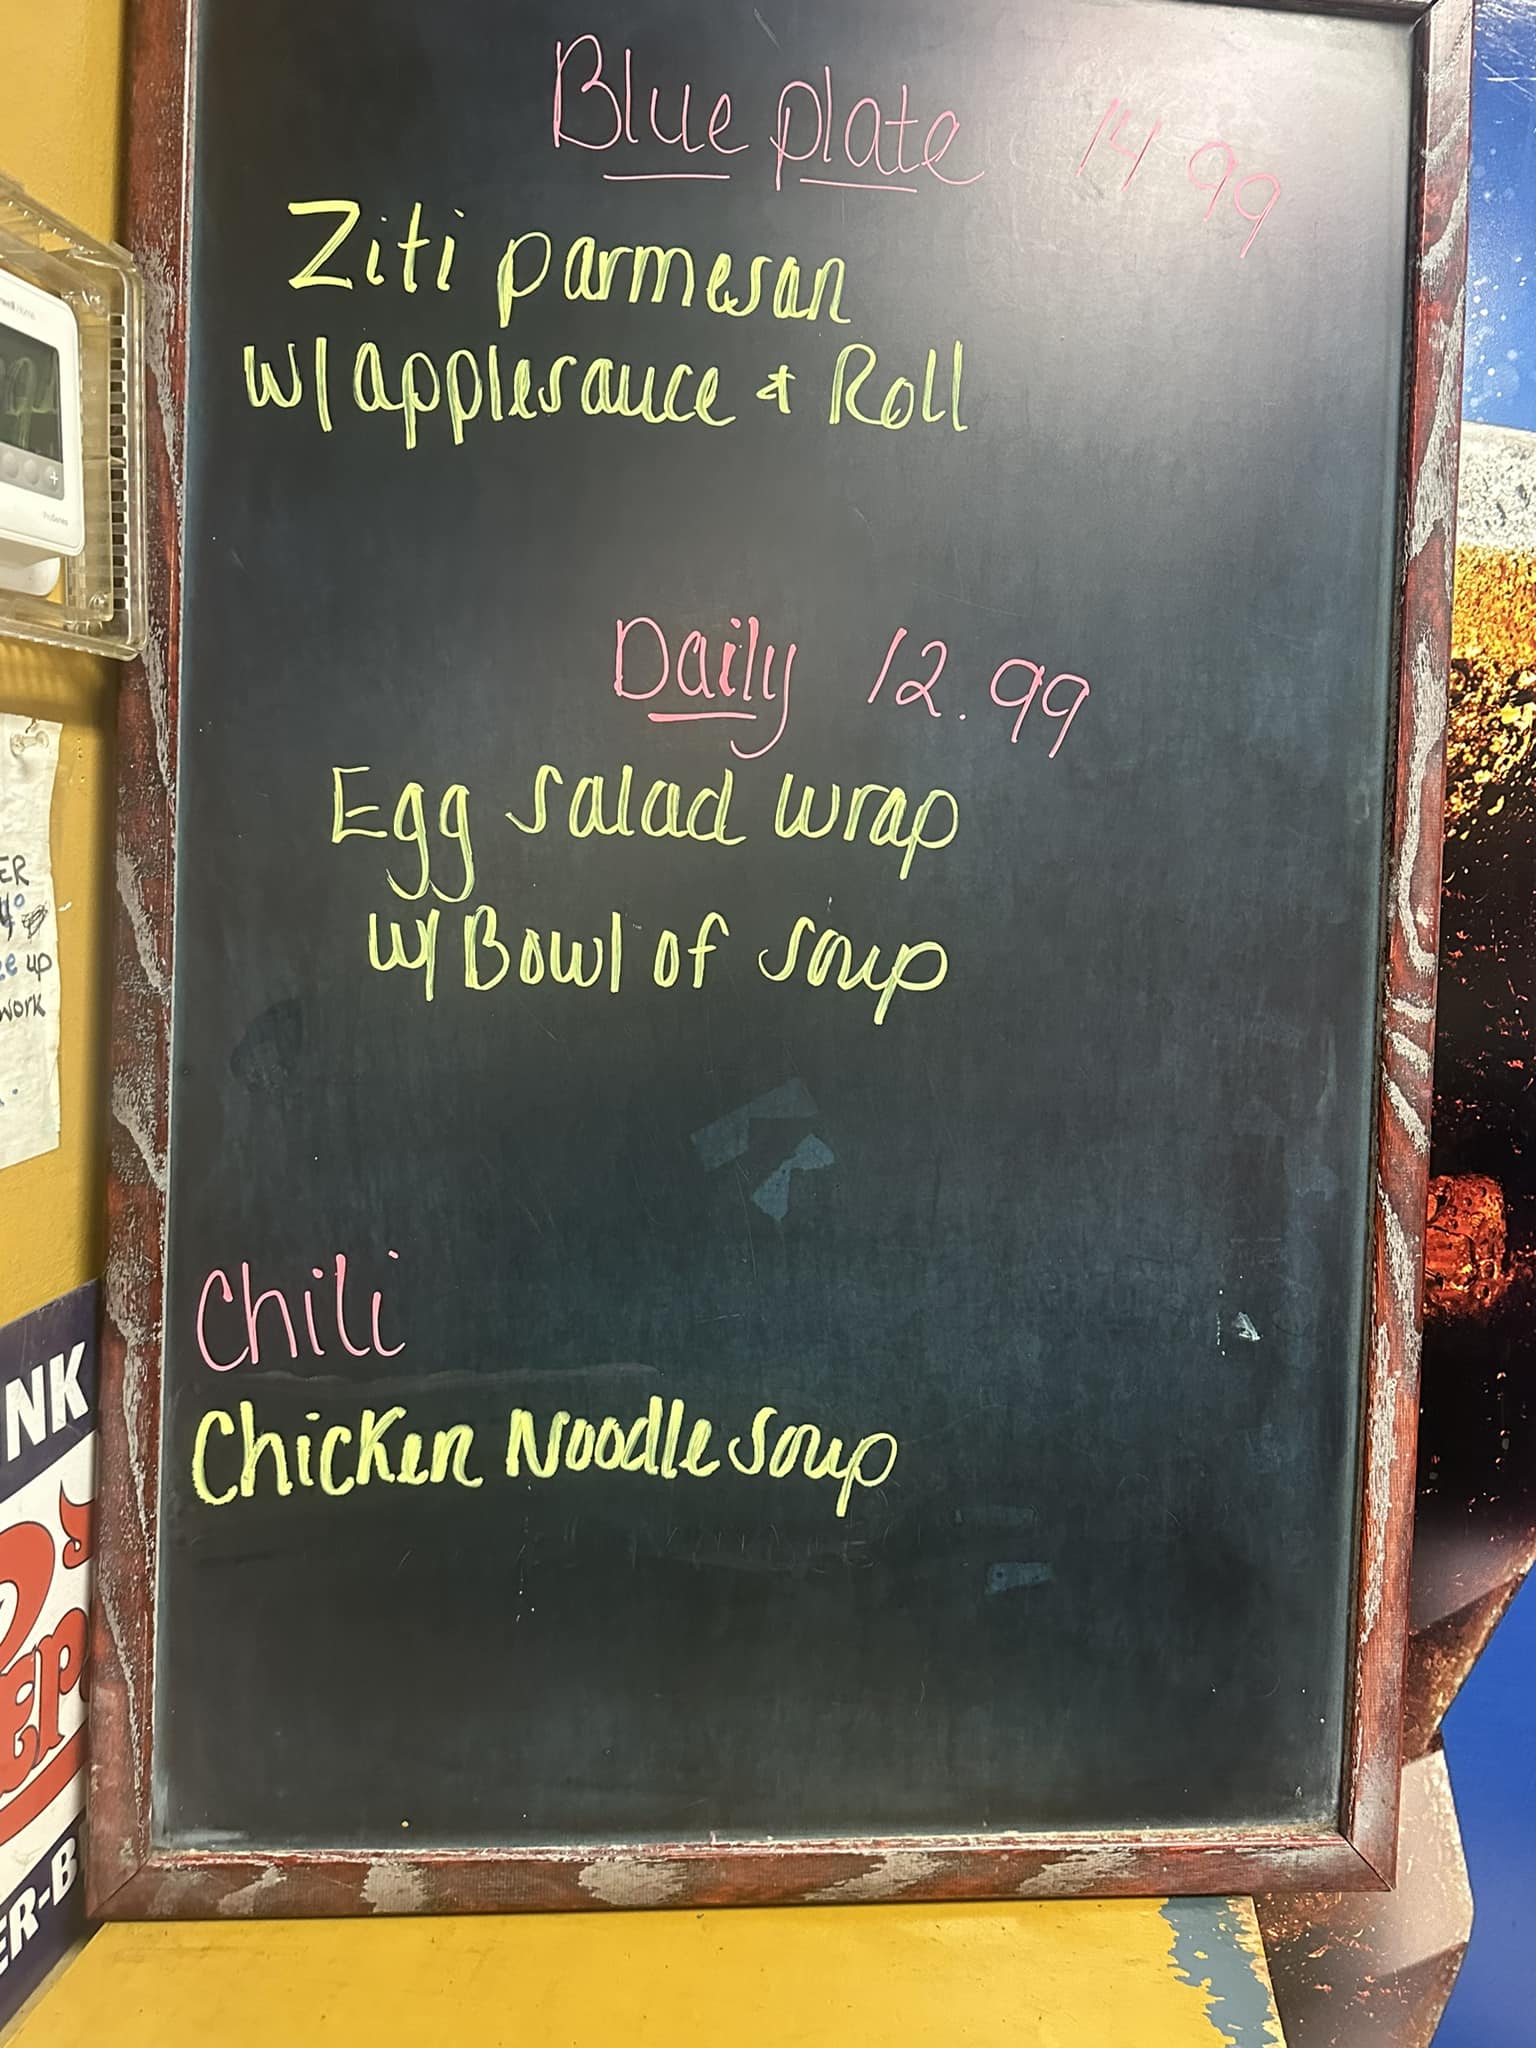 Blue plate 14.99
Ziti parmesan
w/ applesauce & Roll
Daily 12.99
Egg salad wrap
w/ Bowl of soup
Chili
Chicken Noodle soup
ProSeries
ER
up
work
NK
ER-B